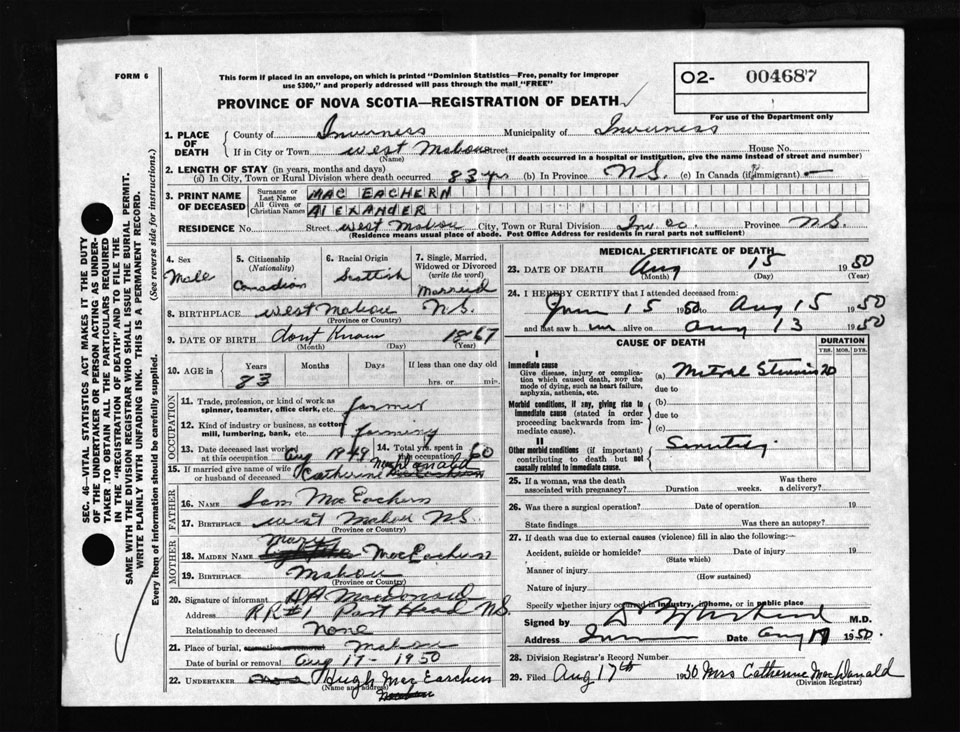 FORM 6
This form if placed in an envelope, on which is printed "Dominion Statistics—Free, penalty for improper
use $300," and properly addressed will pass through the mail "FREE"
O2- 004687
For use of the Department only
PROVINCE OF NOVA SCOTIA—REGISTRATION OF DEATH
1. PLACE OF DEATH
County of Inverness Municipality of Inverness
If in City or Town West Mabou street House No.
(Name) (If death occurred in a hospital or institution, give the name instead of street and number)
2. LENGTH OF STAY (in years, months and days)
(a) In City, Town or Rural Division where death occurred 83 yrs (b) In Province N.S. (c) In Canada (if immigrant) —
3. PRINT NAME OF DECEASED
Surname or Last Name MAC EACHERN
All Given or Christian Names AlEXANDER
RESIDENCE No. Street West Mabou City, Town or Rural Division Inv. Co. Province N.S.
(Residence means usual place of abode. Post Office Address for residents in rural parts not sufficient)
4. Sex
Male
5. Citizenship
(Nationality)
Canadian
6. Racial Origin
Scottish
7. Single, Married, Widowed or Divorced
(write the word)
Married
8. BIRTHPLACE West Mabou N.S.
(Province or Country)
9. DATE OF BIRTH dont Know 1867
(Month) (Day) (Year)
10. AGE in Years Months Days If less than one day
83 hrs. or min.
OCCUPATION
11. Trade, profession, or kind of work as
spinner, teamster, office clerk, etc. farmer
12. Kind of industry or business, as cotton
mill, lumbering, bank, etc. farming
13. Date deceased last worked
at this occupation Aug 1949
14. Total yrs. spent in
this occupation 60
15. If married give name of wife
or husband of deceased Catherine MacDonald
FATHER
16. NAME MacEachern
17. BIRTHPLACE West Mabou N.S.
(Province or Country)
MOTHER
18. MAIDEN NAME Mary MacEachern
19. BIRTHPLACE Mabou
(Province or Country)
20. Signature of informant MacDonald
Address R.R.#1 Port Hood N.S.
Relationship to deceased None
21. Place of burial, cremation or removal Mabou
Date of burial or removal Aug 17- 1950
22. UNDERTAKER Hugh Mac Earchen
(Name and address)
MEDICAL CERTIFICATE OF DEATH
23. DATE OF DEATH Aug 15 1950
(Month) (Day) (Year)
24. I HEREBY CERTIFY that I attended deceased from:
15 1950 to Aug 15 1950
and last saw him alive on Aug 13 1950
CAUSE OF DEATH
DURATION
YRS. MOS. DYS.
I
Immediate cause
Give disease, injury or complication which caused death, not the mode of dying, such as heart failure, asphyxia, asthenia, etc.
(a) Mitral Stenosis
due to
Morbid conditions, if any, giving rise to immediate cause (stated in order proceeding backwards from immediate cause).
(b)
due to
(c)
II
Other morbid conditions (if important) contributing to death but not causally related to immediate cause.
Senility
25. If a woman, was the death
associated with pregnancy? Duration weeks. Was there a delivery?
26. Was there a surgical operation? Date of operation 19
State findings Was there an autopsy?
27. If death was due to external causes (violence) fill in also the following:—
Accident, suicide or homicide? Date of injury 19
(State which)
Manner of injury
(How sustained)
Nature of injury
Specify whether injury occurred in industry, in home, or in public place
Signed by M.D.
Address Date Aug 17 1950
28. Division Registrar's Record Number
29. Filed Aug 17th 1950 Mrs Catherine MacDonald
(Division Registrar)
SEC. 46—VITAL STATISTICS ACT MAKES IT THE DUTY
OF THE UNDERTAKER OR PERSON ACTING AS UNDERTAKER TO OBTAIN ALL THE PARTICULARS REQUIRED
IN THE "REGISTRATION OF DEATH" AND TO FILE THE
SAME WITH THE DIVISION REGISTRAR WHO SHALL ISSUE THE BURIAL PERMIT.
WRITE PLAINLY WITH UNFADING INK. THIS IS A PERMANENT RECORD.
Every item of information should be carefully supplied. (See reverse side for instructions.)